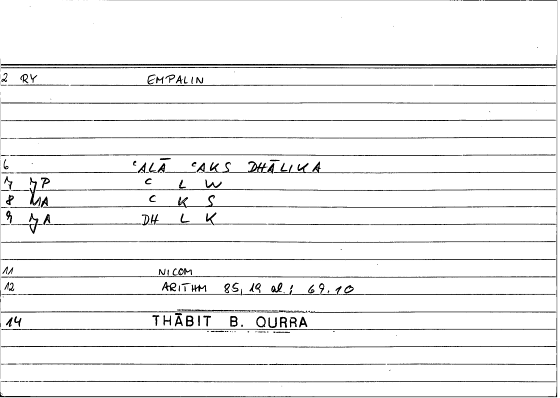 2 RY EMPALIN
6 ʿALĀ ʿAKS DHĀLIKA
7 JP C L W
8 MA C K S
9 JA DH L K
11 NICOM
12 ARITHM 85,19 al; 69.10
14 THĀBIT B. QURRA